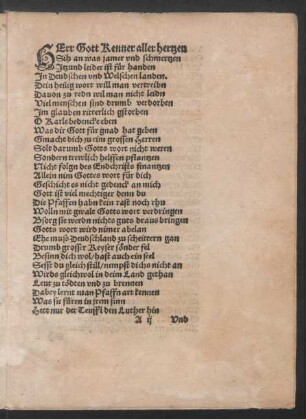 HErr Gott Kenner aller hertzen
Sih an was jamer vnd schmertzen
Itzund leider ist für handen
In Deudschen vnd Welschen landen.
Dein heilig wort will man vertreibn
Dauon zu redn wil man nicht leidn
Viel menschen sind drumb verdorben
Jm glauben ritterlich gstorben
O Karle bedenck eben
Was dir Gott für gnad hat geben
Gmacht dich zu ein grossen Herren
Solt darumb Gotts wort nicht weren
Sondern trewlich helffen pflantzen
Nicht folgn des Endchrists finantzen
Allein nim Gottes wort für dich
Geschicht es nicht gedenck an mich
Gott ist viel mechtiger denn du
Die Pfaffen habn kein rast noch rhu
Wolln mit gwalt Gotts wort verdringen
Bsorg sie werdn nichts guts draus bringen
Gotts wort wird nimer abelan
Ehe mus Deudschland zu scheittern gan
Drumb grosser Keyser sonder feil
Besinn dich wol/hast auch ein seel
Sesst du gleich still/nempst dichs nicht an
Wirds gleichwol in deim Land gethan
Leut zu tödten vnd zu brennen
Dabey lernt man Pfaffn art kennen
Was sie füren in jrem sinn
Hett nur der Teuffl den Luther hin
A ij Vnd